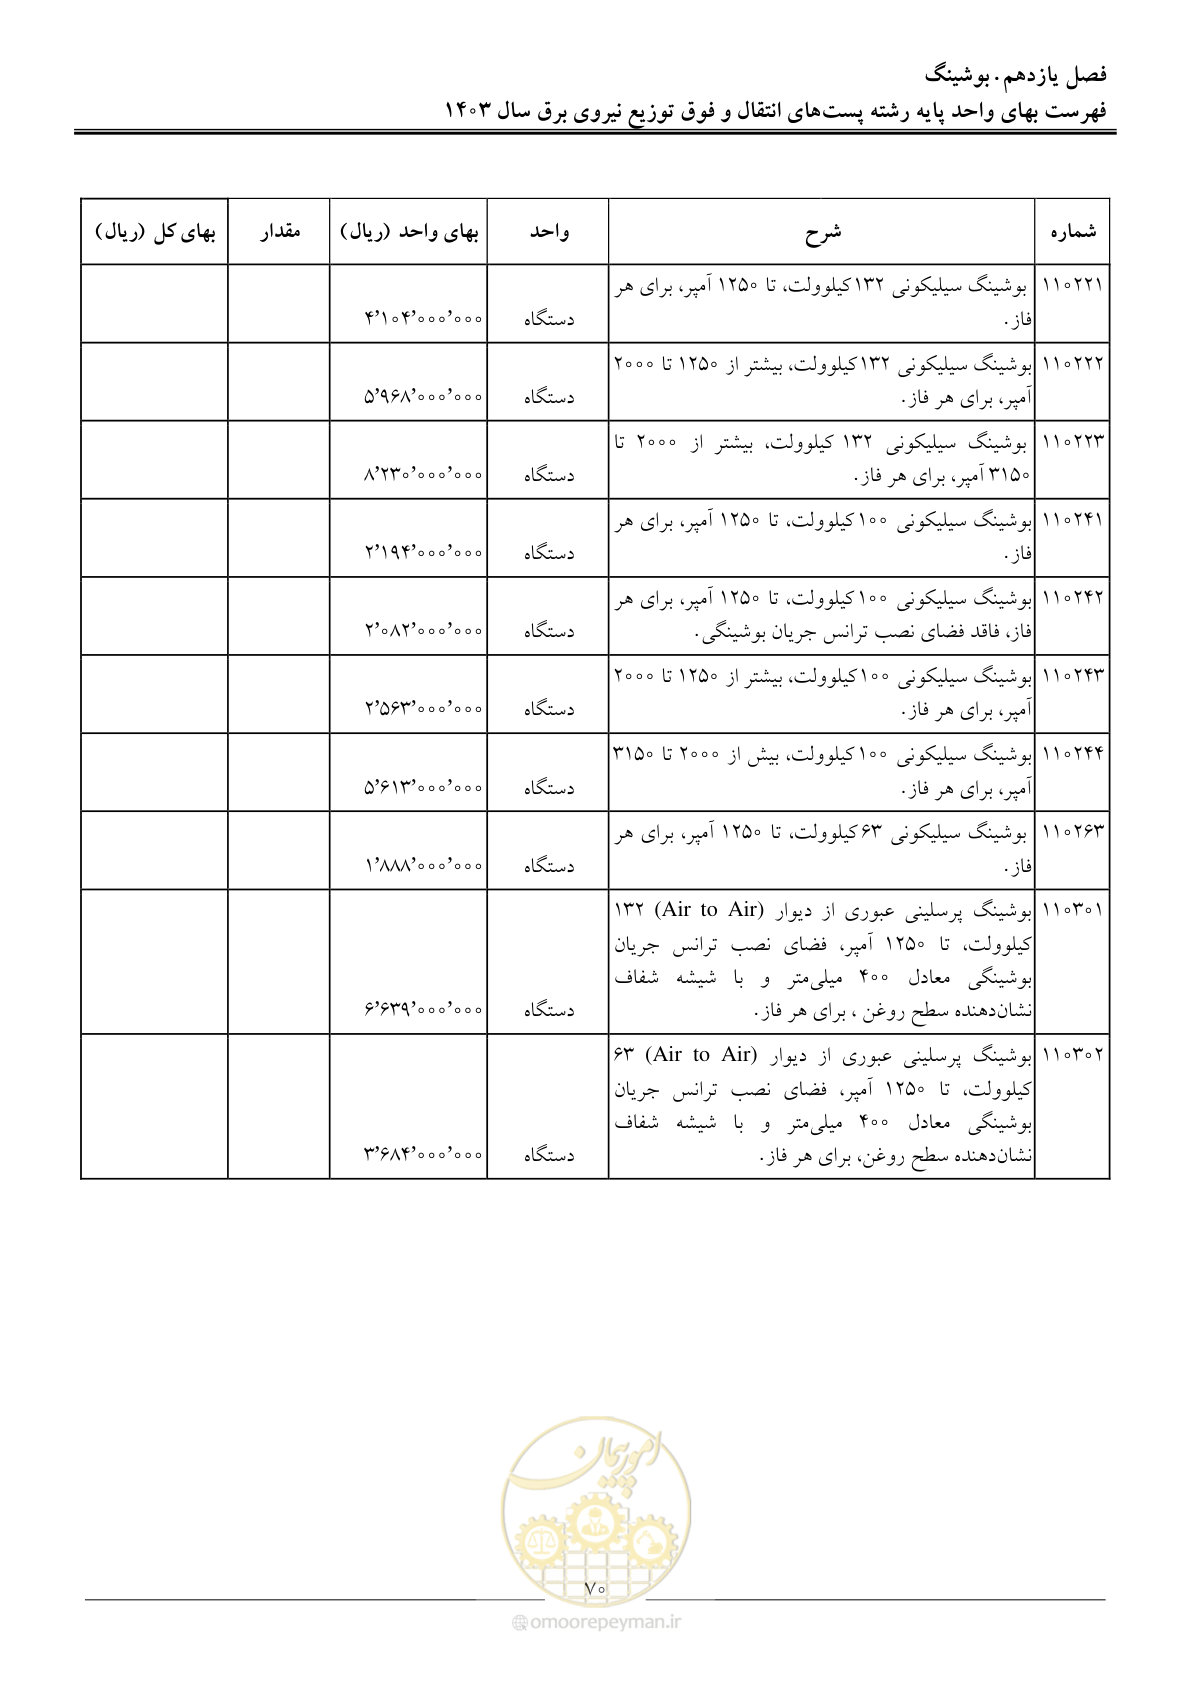 فصل یازدهم. بوشینگ
فهرست بهای واحد پایه رشته پست‌های انتقال و فوق توزیع نیروی برق سال ۱۴۰۳
شماره	شرح	واحد	بهای واحد (ریال)	مقدار	بهای کل (ریال)
۱۱۰۲۲۱	بوشینگ سیلیکونی ۱۳۲کیلوولت، تا ۱۲۵۰ آمپر، برای هر
فاز.	دستگاه	۴٬۱۰۴٬۰۰۰٬۰۰۰
۱۱۰۲۲۲	بوشینگ سیلیکونی ۱۳۲کیلوولت، بیشتر از ۱۲۵۰ تا ۲۰۰۰
آمپر، برای هر فاز.	دستگاه	۵٬۹۶۸٬۰۰۰٬۰۰۰
۱۱۰۲۲۳	بوشینگ سیلیکونی ۱۳۲ کیلوولت، بیشتر از ۲۰۰۰ تا
۳۱۵۰ آمپر، برای هر فاز.	دستگاه	۸٬۲۳۰٬۰۰۰٬۰۰۰
۱۱۰۲۴۱	بوشینگ سیلیکونی ۱۰۰کیلوولت، تا ۱۲۵۰ آمپر، برای هر
فاز.	دستگاه	۲٬۱۹۴٬۰۰۰٬۰۰۰
۱۱۰۲۴۲	بوشینگ سیلیکونی ۱۰۰کیلوولت، تا ۱۲۵۰ آمپر، برای هر
فاز، فاقد فضای نصب ترانس جریان بوشینگی.	دستگاه	۲٬۰۸۲٬۰۰۰٬۰۰۰
۱۱۰۲۴۳	بوشینگ سیلیکونی ۱۰۰کیلوولت، بیشتر از ۱۲۵۰ تا ۲۰۰۰
آمپر، برای هر فاز.	دستگاه	۲٬۵۶۳٬۰۰۰٬۰۰۰
۱۱۰۲۴۴	بوشینگ سیلیکونی ۱۰۰کیلوولت، بیش از ۲۰۰۰ تا ۳۱۵۰
آمپر، برای هر فاز.	دستگاه	۵٬۶۱۳٬۰۰۰٬۰۰۰
۱۱۰۲۶۳	بوشینگ سیلیکونی ۶۳کیلوولت، تا ۱۲۵۰ آمپر، برای هر
فاز.	دستگاه	۱٬۸۸۸٬۰۰۰٬۰۰۰
۱۱۰۳۰۱	بوشینگ پرسلینی عبوری از دیوار (Air to Air) ۱۳۲
کیلوولت، تا ۱۲۵۰ آمپر، فضای نصب ترانس جریان
بوشینگی معادل ۴۰۰ میلی‌متر و با شیشه شفاف
نشان‌دهنده سطح روغن ، برای هر فاز.	دستگاه	۶٬۶۳۹٬۰۰۰٬۰۰۰
۱۱۰۳۰۲	بوشینگ پرسلینی عبوری از دیوار (Air to Air) ۶۳
کیلوولت، تا ۱۲۵۰ آمپر، فضای نصب ترانس جریان
بوشینگی معادل ۴۰۰ میلی‌متر و با شیشه شفاف
نشان‌دهنده سطح روغن، برای هر فاز.	دستگاه	۳٬۶۸۴٬۰۰۰٬۰۰۰
امور پیمان
۷۰
omoorepeyman.ir